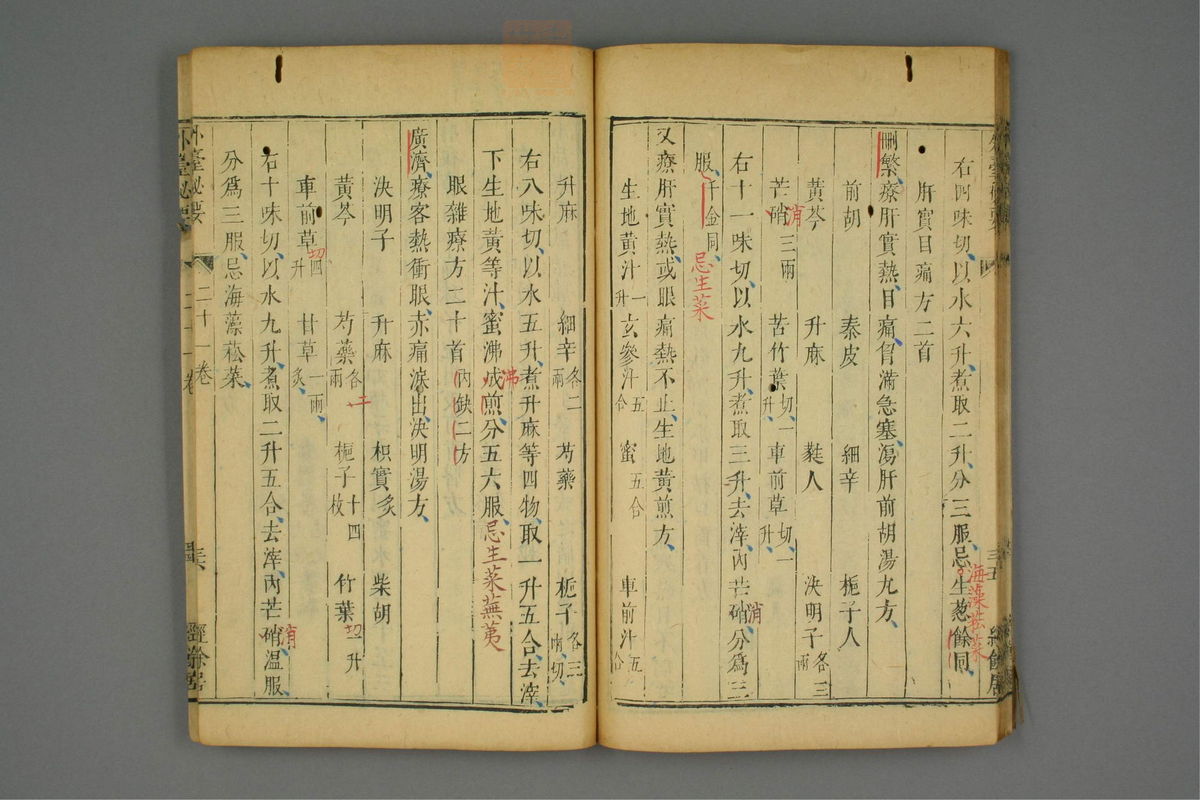 右四味切以水六升煮取二升分三服忌生葱餘同
海藻菘菜
肝實目痛方二首
刪繁療肝實熱目痛胷滿急塞瀉肝前胡湯九方
前胡 秦皮 細辛 梔子人
黃芩 升麻 蕤人 決明子各三兩
芒硝三兩 苦竹葉切一升 車前草切一升
消
右十一味切以水九升煮取三升去滓內芒硝分為三
消
服千金同
忌生菜
又療肝實熱或眼痛熱不止生地黃煎方
生地黃汁一升 玄參汁五合 蜜五合 車前汁五合
升麻 細辛各二兩 芍藥 梔子各三兩切
右八味切以水五升煮升麻等四物取一升五合去滓
下生地黃等汁蜜沸成煎分五六服
沸
忌生菜蕪荑
眼雜療方二十首內缺二方
廣濟療客熱衝眼赤痛淚出決明湯方
決明子 升麻 枳實炙 柴胡
黃芩 芍藥各二兩 梔子十四枚 竹葉切二升
車前草切四升 甘草一兩炙
右十味切以水九升煮取二升五合去滓內芒硝溫服
消
分爲三服忌海藻菘菜
外臺秘要 二十一卷 三六 經餘居